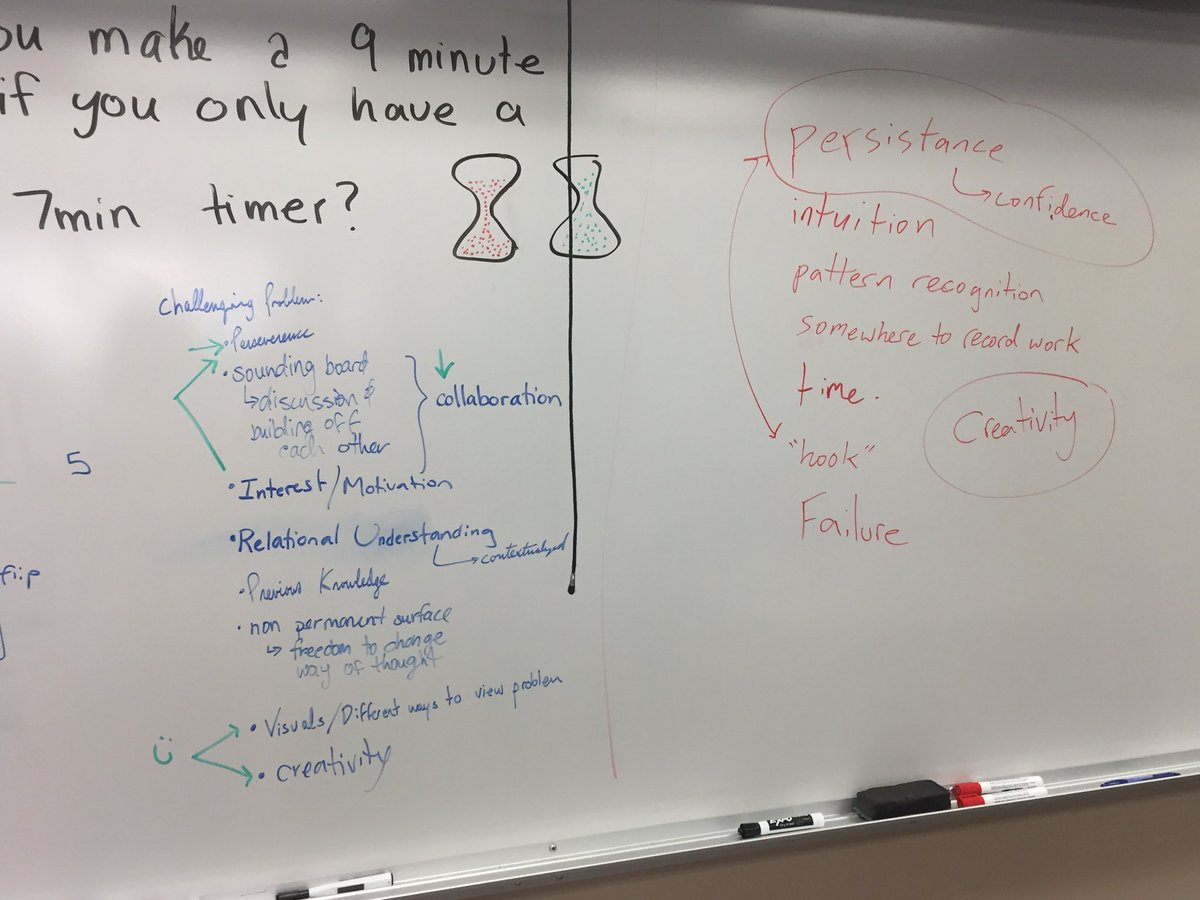 ou make a 9 minute
if you only have a
7min timer?
Challenging Problem:
• Perseverence
• sounding board
↳ discussion &
buibling off
each other
collaboration
• Interest/Motivation
• Relational Understanding
↳ contextualized
• Previous Knowledge
• non permanent surface
↳ freedom to change
way of thought
• Visuals/Different ways to view problem
• creativity
5
flip
persistance
↳ confidence
intuition
pattern recognition
somewhere to record work
time.
Creativity
"hook"
Failure
EXPO